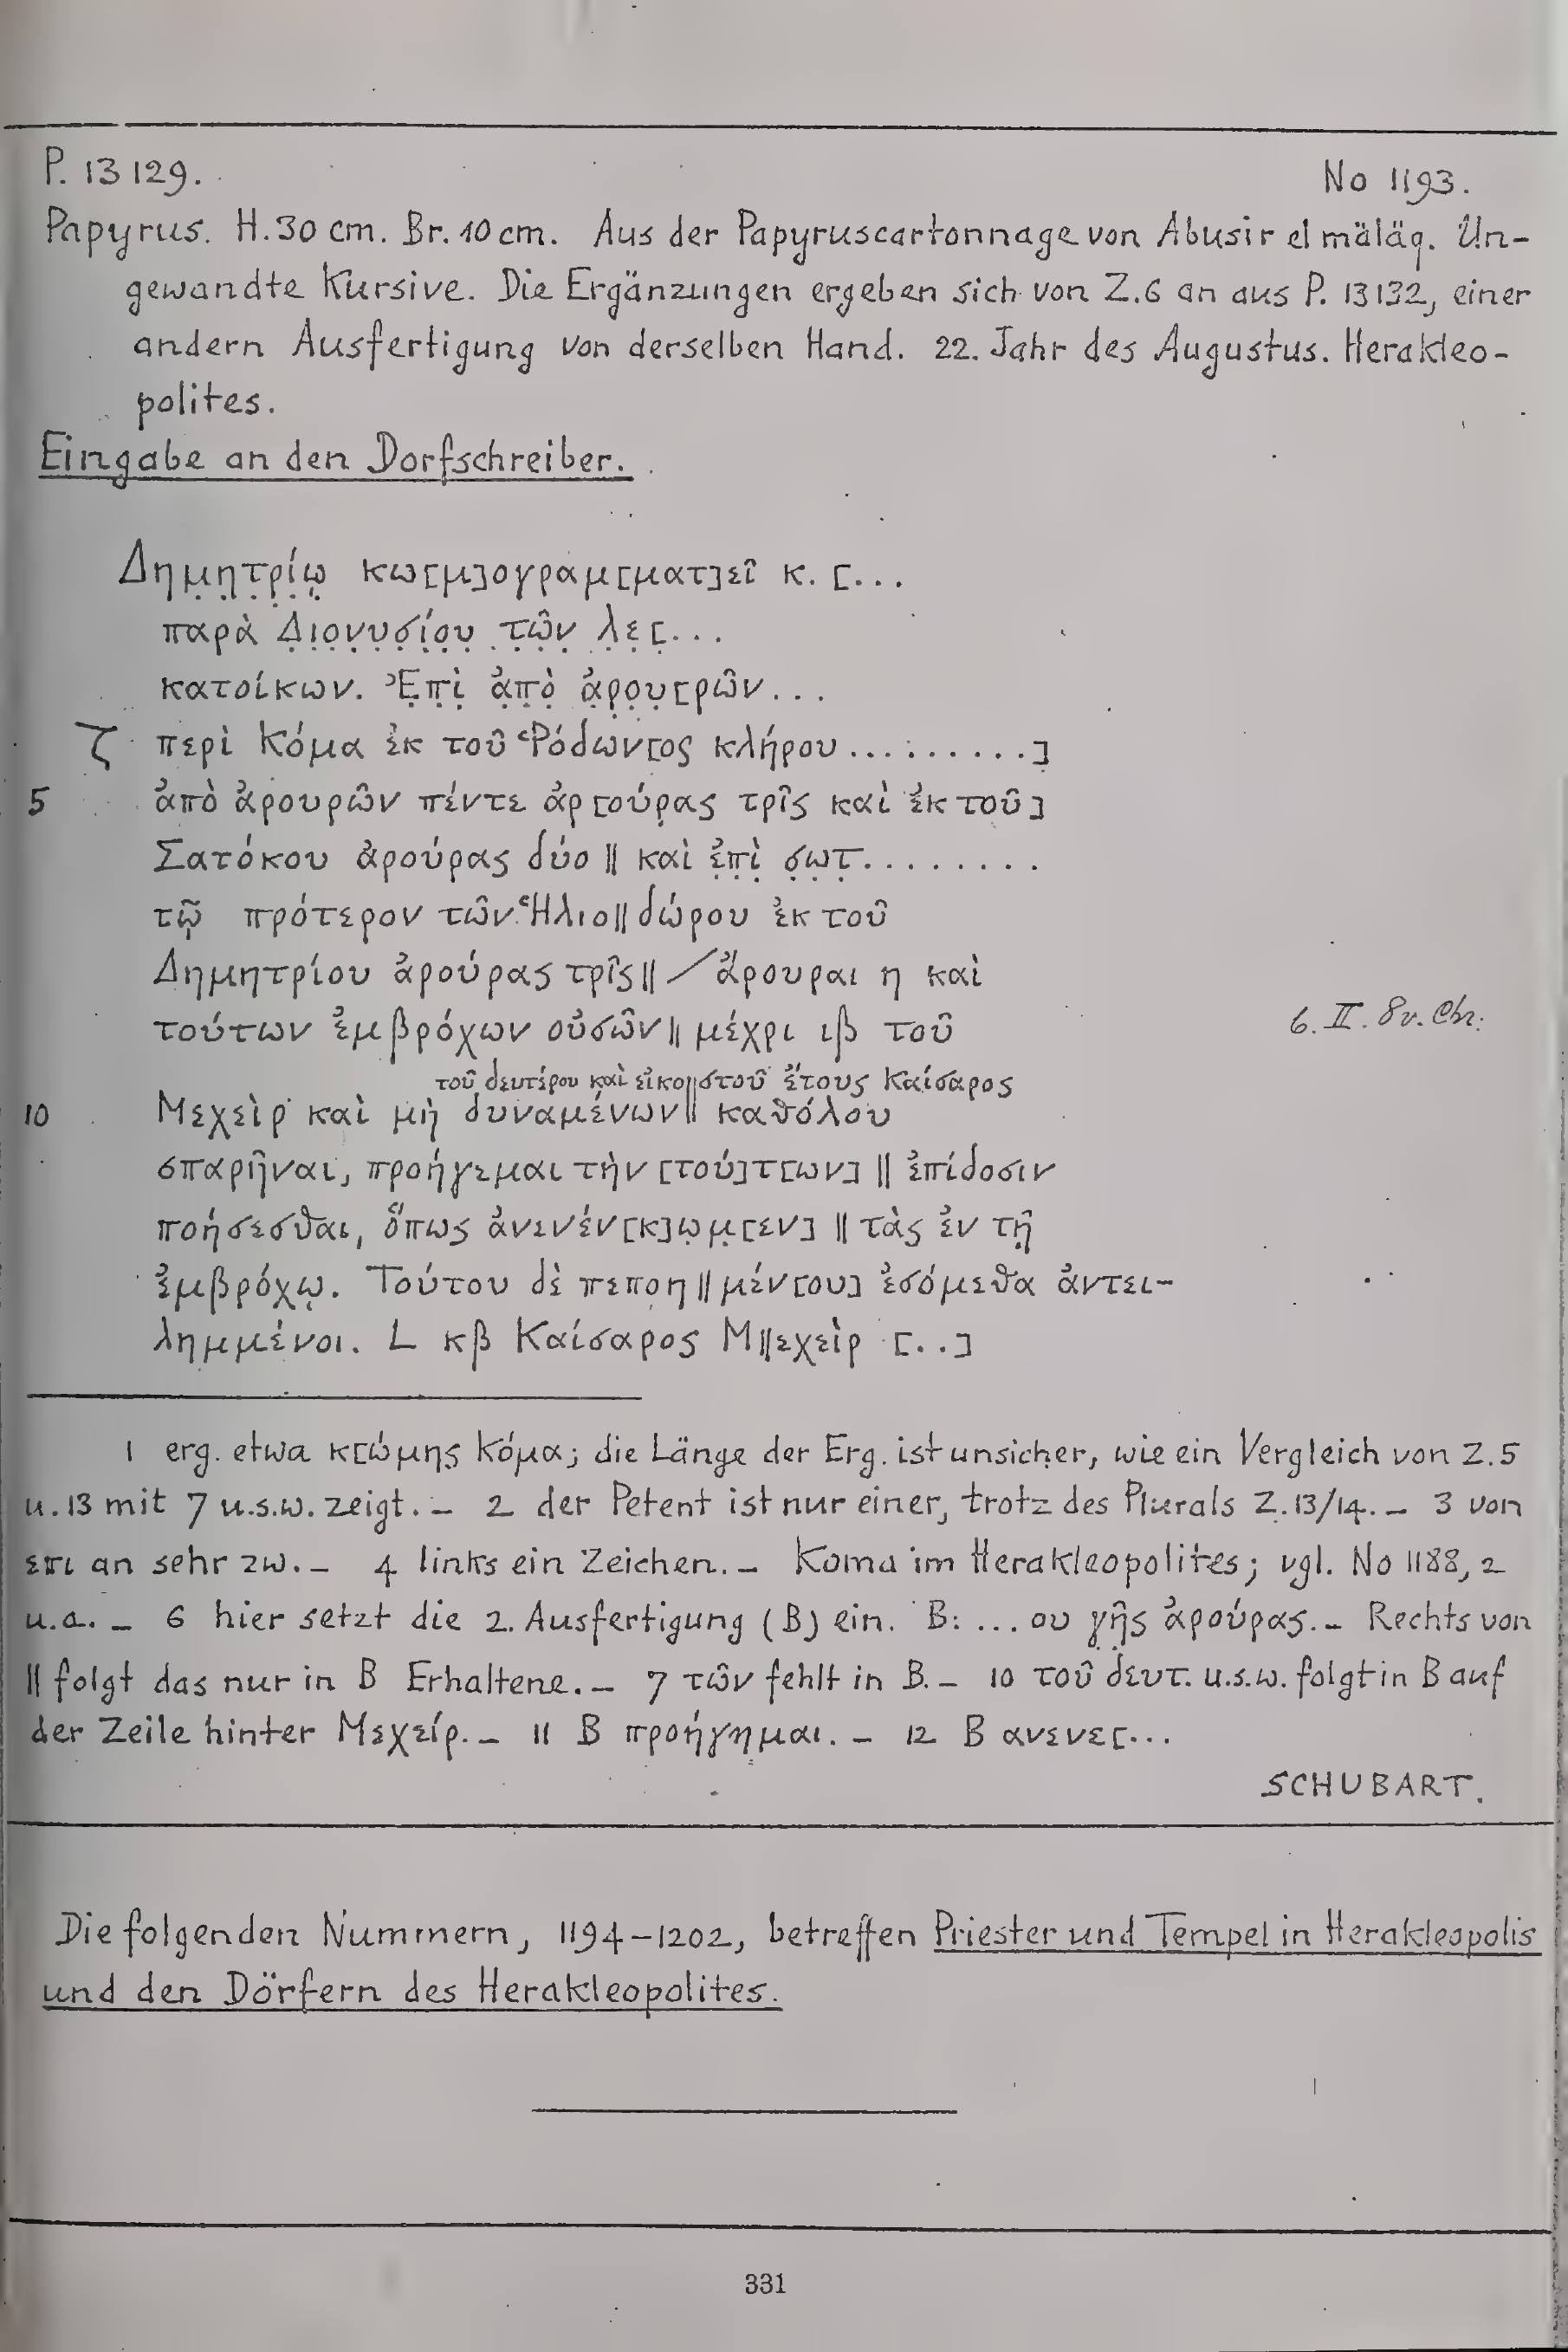 P. 13129. No 1193.
Papyrus. H. 30 cm. Br. 10 cm. Aus der Papyruscartonnage von Abusir el mäläq. Un-
gewandte Kursive. Die Ergänzungen ergeben sich von Z. 6 an aus P. 13132, einer
andern Ausfertigung von derselben Hand. 22. Jahr des Augustus. Herakleo-
polites.
Eingabe an den Dorfschreiber.
Δη̣μ̣η̣τ̣ρ̣ί̣ῳ̣ κω[μ]ογραμ[ματ]εῖ κ. [...
παρὰ Δ̣ι̣ο̣ν̣υ̣σ̣ί̣ο̣υ̣ τ̣ῶ̣ν̣ λ̣ε̣[...
κατοίκων. Ἐ̣π̣ὶ̣ ἀ̣π̣ὸ̣ ἀ̣ρ̣ο̣υ̣[ρῶν...
ζ περὶ Κόμα ἐκ τοῦ Ῥόδων[ος κλήρου .........]
5 ἀπὸ ἀρουρῶν πέντε ἀρ[ούρας τρῖς καὶ ἐκ τοῦ]
Σατόκου ἀρούρας δύο || καὶ ἐ̣π̣ὶ̣ σ̣ω̣τ̣........
τῷ πρότερον τῶν Ἡλιο||δώρου ἐκ τοῦ
Δημητρίου ἀρούρας τρῖς || ╱ ἄρουραι η καὶ
τούτων ἐμβρόχων οὐσῶν || μέχρι ιβ τοῦ 6. II. 8 v. Chr.
τοῦ δευτέρου καὶ εἰκο||στοῦ ἔτους Καίσαρος
10 Μεχεὶρ καὶ μὴ δυναμένων || καθόλου
σπαρῆναι, προήγεμαι τὴν [τού]τ[ων] || ἐπίδοσιν
ποήσεσθαι, ὅπως ἀνενέν[κ]ω̣μ̣[εν] || τὰς ἐν τῇ
ἐμβρόχῳ. Τούτου δὲ πεποη||μέν[ου] ἐσόμεθα ἀντει-
λημμένοι. L κβ Καίσαρος Μ||εχεὶρ [..]
1 erg. etwa κ[ώμης Κόμα; die Länge der Erg. ist unsicher, wie ein Vergleich von Z. 5
u. 13 mit 7 u.s.w. zeigt. – 2 der Petent ist nur einer, trotz des Plurals Z. 13/14. – 3 von
επι an sehr zw. – 4 links ein Zeichen. – Koma im Herakleopolites; vgl. No 1188, 2
u.a. – 6 hier setzt die 2. Ausfertigung (B) ein. B: ... ου γῆς ἀρούρας. – Rechts von
|| folgt das nur in B Erhaltene. – 7 τῶν fehlt in B. – 10 τοῦ δευτ. u.s.w. folgt in B auf
der Zeile hinter Μεχείρ. – 11 B προήγημαι. – 12 B ανενε[...
SCHUBART.
Die folgenden Nummern, 1194–1202, betreffen Priester und Tempel in Herakleopolis
und den Dörfern des Herakleopolites.
331